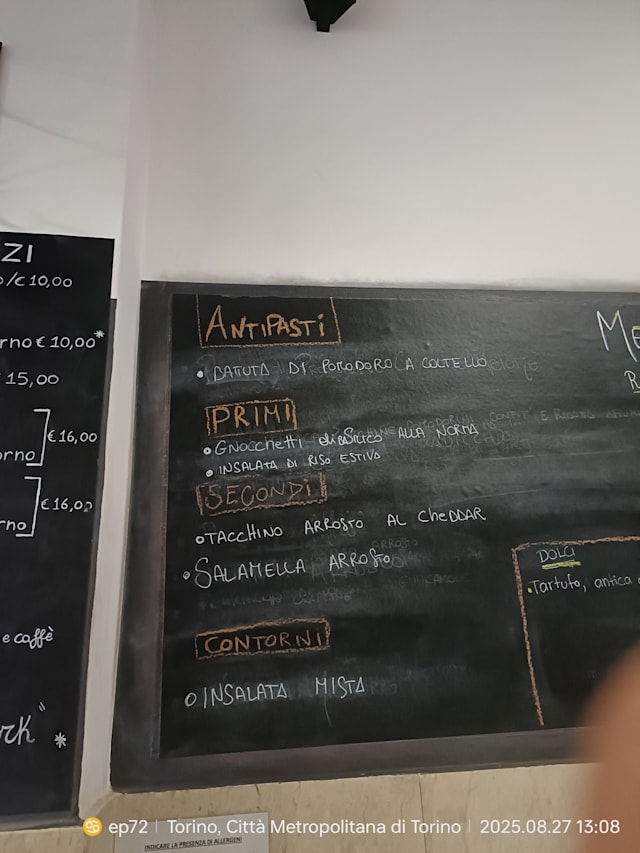 ZI
o/€ 10,00
rno € 10,00*
15,00
€ 16,00
orno
€ 16,00
rno
e caffè
rk" *
ANTIPASTI
• BATUTA DI POMODORO A COLTELLO
PRIMI
• GNOCCHETTI di BASILICO ALLA NORMA
• INSALATA DI RISO ESTIVA
SECONDI
• TACCHINO ARROSTO AL CHEDDAR
• SALAMELLA ARROSTO
CONTORNI
• INSALATA MISTA
ME
DOLCI
• Tartufo, antica
INDICARE LA PRESENZA DI ALLERGENI
ep72 | Torino, Città Metropolitana di Torino | 2025.08.27 13:08